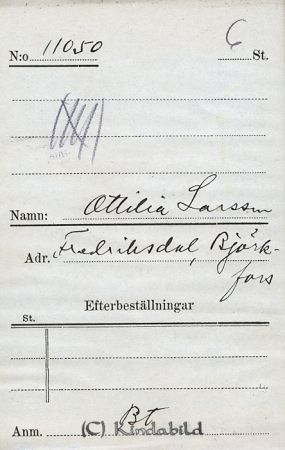 N:o 11050 6 St.
Namn: Ottilia Larsson
Adr. Fredriksdal, Björk-
fors
Efterbeställningar
St.
Anm. Bt
(C) Kindabild